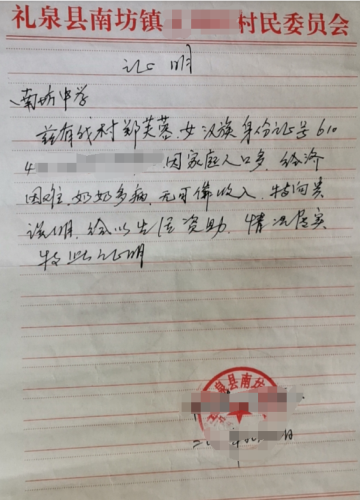 礼泉县南坊镇 村民委员会
证明
南坊中学
兹有我村郑芙蓉，女，汉族，身份证号610
4 因家庭人口多，经济
困难，奶奶多病，无可靠收入，特向贵
说明，给以生活资助，情况属实
特此证明
礼泉县南坊
二 年 日